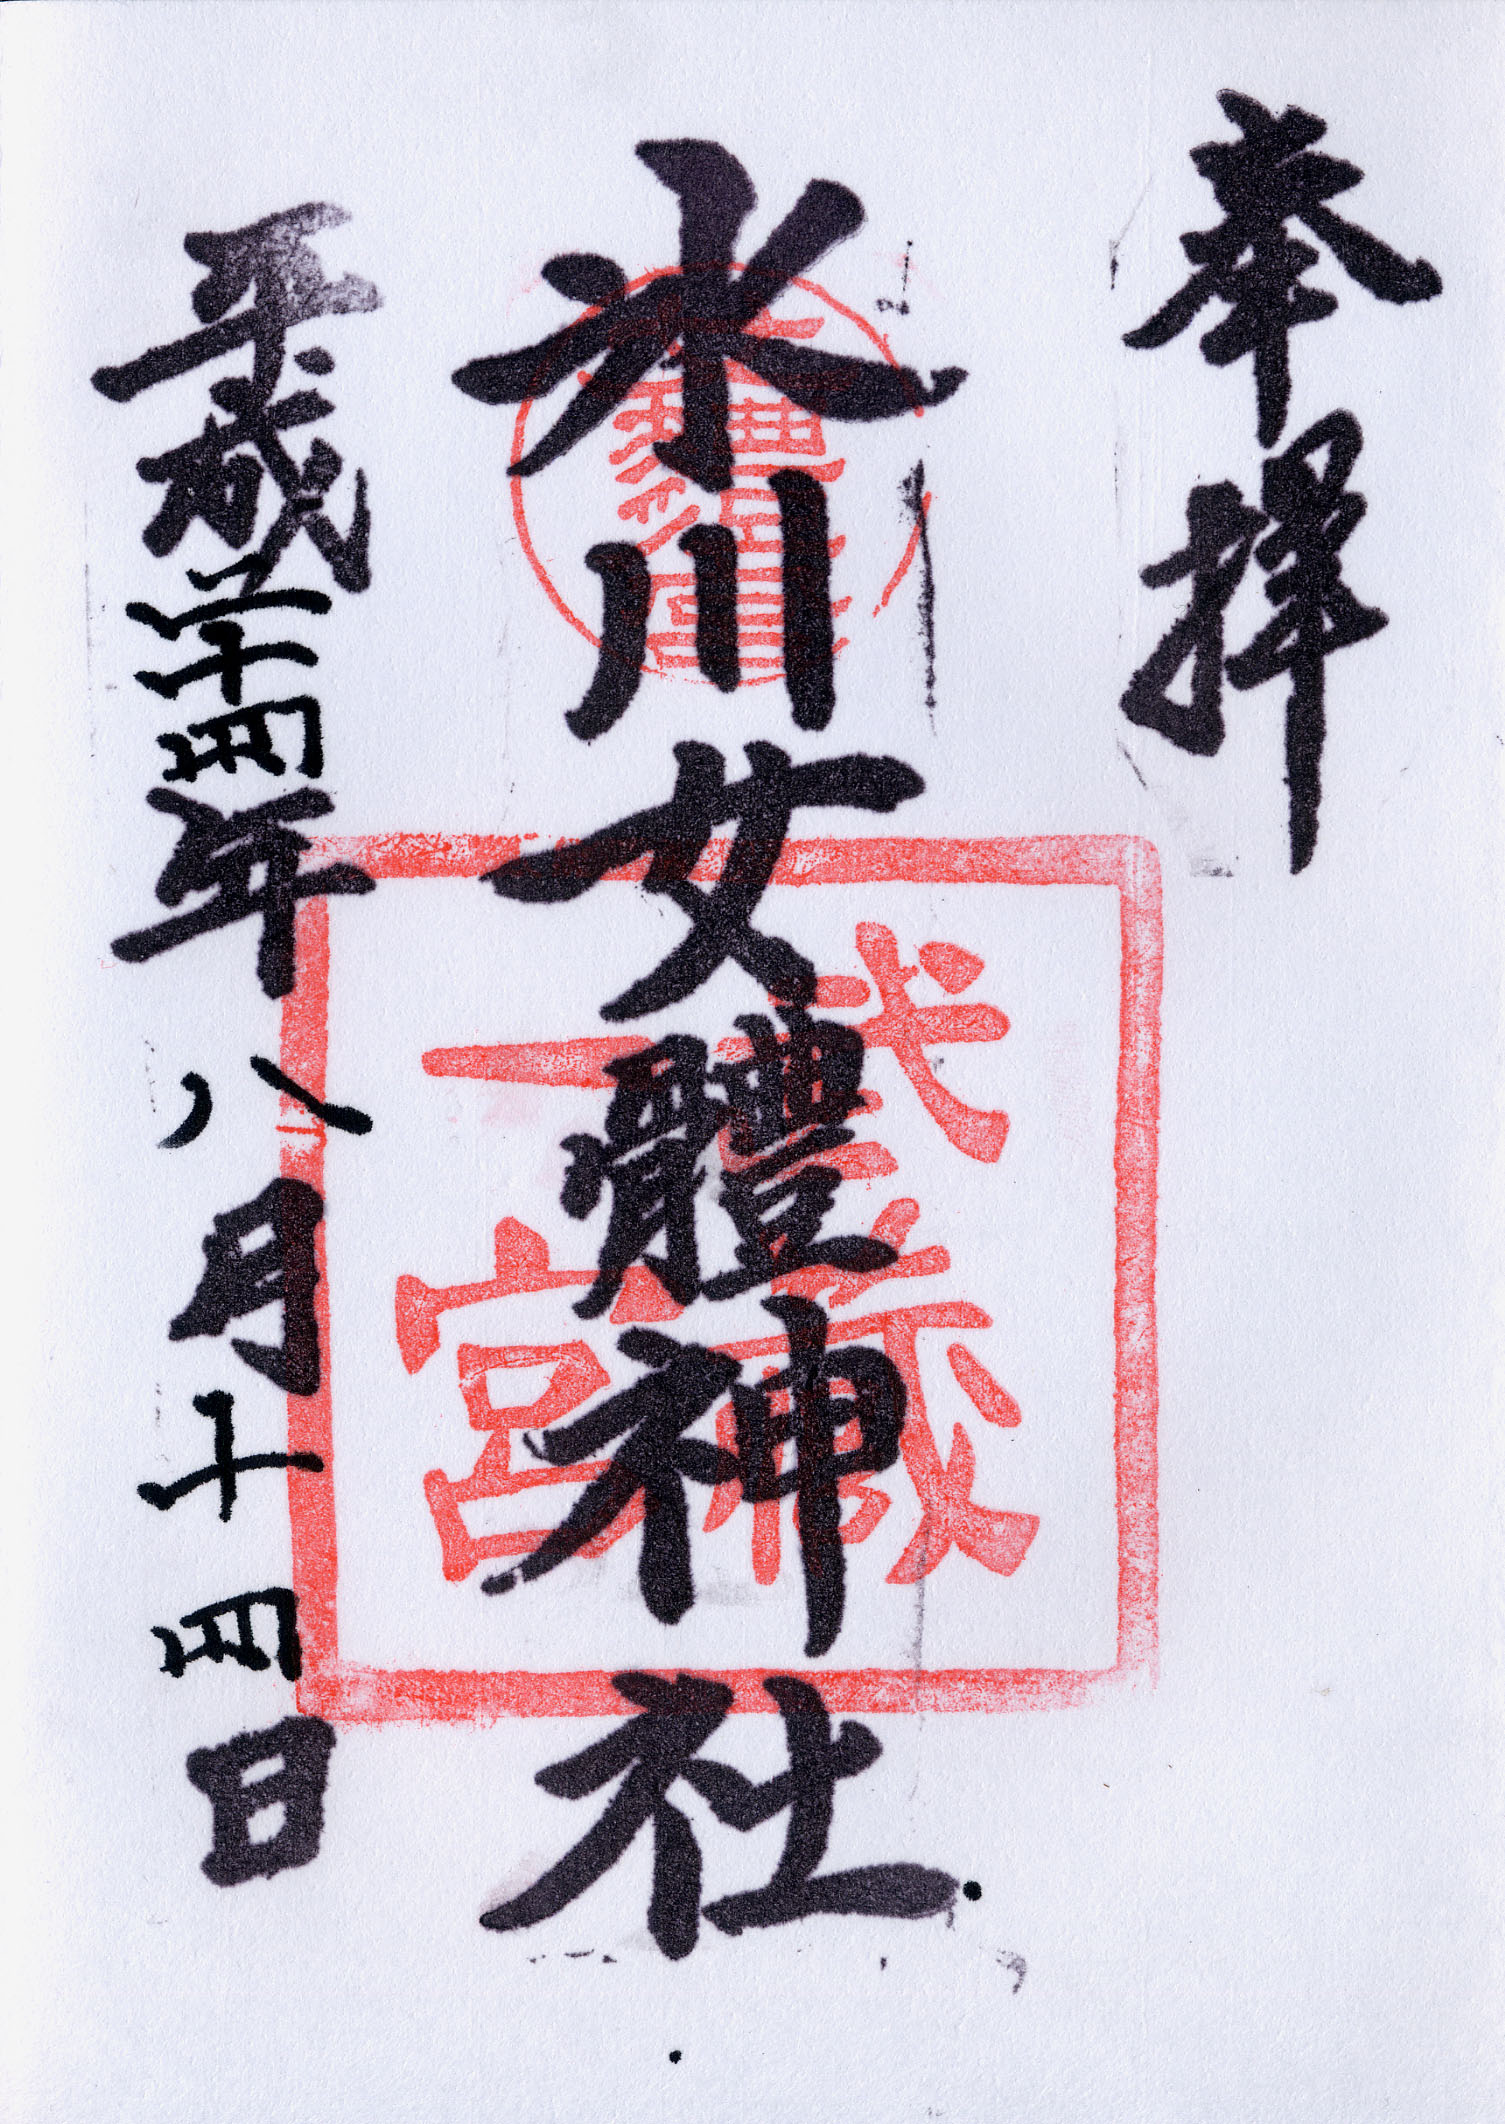 奉拝
氷川女體神社
武蔵
一宮
平成二十四年八月十四日